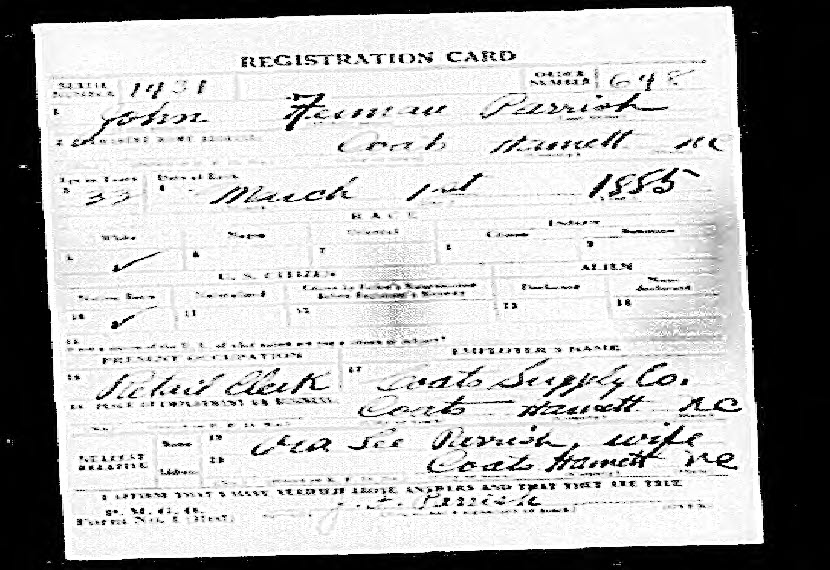 REGISTRATION CARD
SERIAL NUMBER 1431 ORDER NUMBER 648
1 John Parrish
2 PERMANENT HOME ADDRESS: Coats Harnett NC
Age in Years Date of Birth
3 33 4 March 1st 1885
RACE
White Negro Oriental Indian
Citizen Noncitizen
5 ✓ 6 7 8 9
U. S. CITIZEN ALIEN
Native Born Naturalized Declarant Non-declarant
10 ✓ 11 12 13 14
15
PRESENT OCCUPATION EMPLOYER'S NAME
16 Retail Clerk 17 Coats Supply Co.
18 PLACE OF EMPLOYMENT OR BUSINESS: Coats Harnett NC
NEAREST RELATIVE Name 19 Lee Parrish, wife
Address 20 Coats Harnett NC
I AFFIRM THAT I HAVE VERIFIED ABOVE ANSWERS AND THAT THEY ARE TRUE
P. M. G. O.
Form No. 1 (Red) Parrish (OVER)